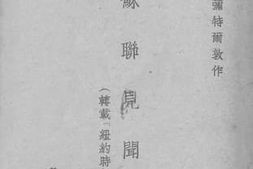 彌特爾敦作
蘇聯見聞
(轉載「紐約時